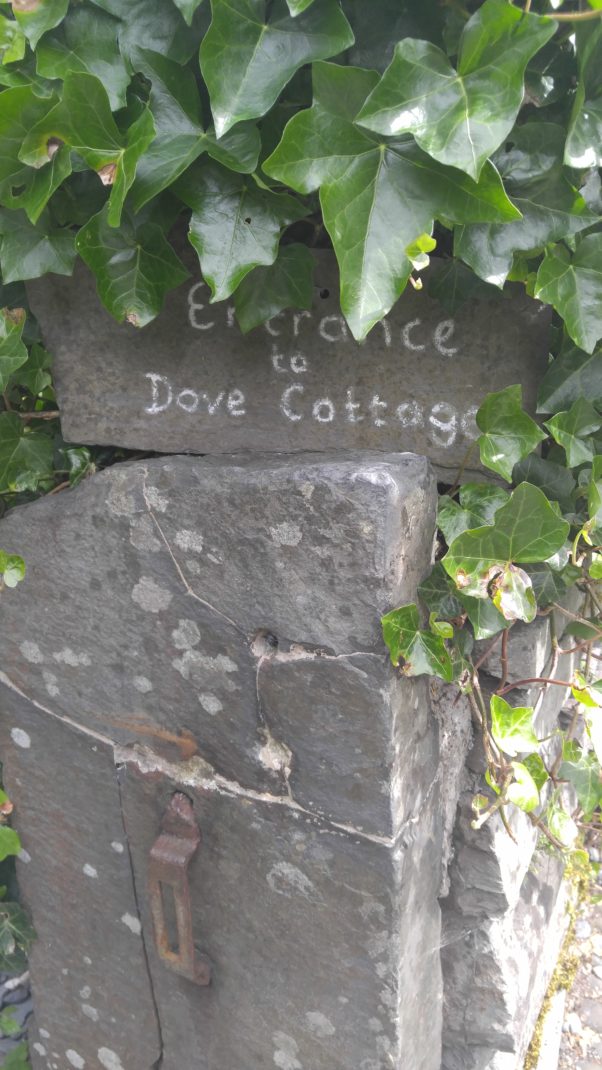 Entrance
to
Dove Cottage